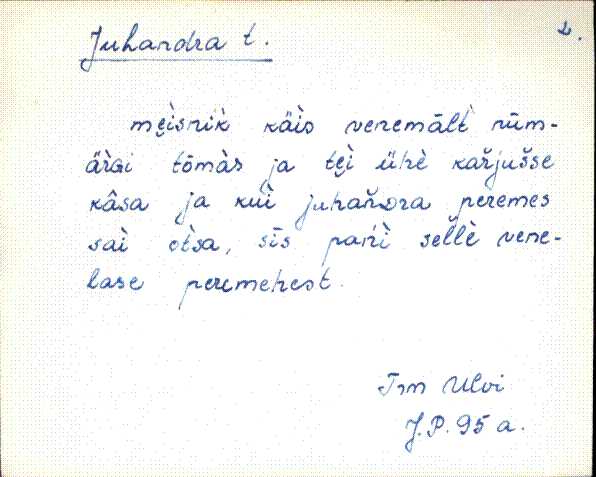 2.
Juhandra t.
mȩìsnik̀ käìs venemālt̀ nūm-
äŕGi tōmàs ja tȩì ühè kaȓjušse
kâsa ja kuì juhaňdra peremes
saì otsa, sīs pańì sellè vene-
lase peremehest.
Trm Ulvi
J.P. 95 a.